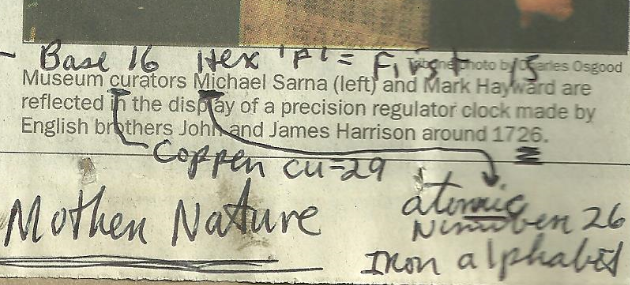 Base 16 Hex = First 15
Tribune photo by Charles Osgood
Museum curators Michael Sarna (left) and Mark Hayward are
reflected in the display of a precision regulator clock made by
English brothers John and James Harrison around 1726.
Copper cu=29
Mother Nature
atomic
Number 26
Iron alphabet